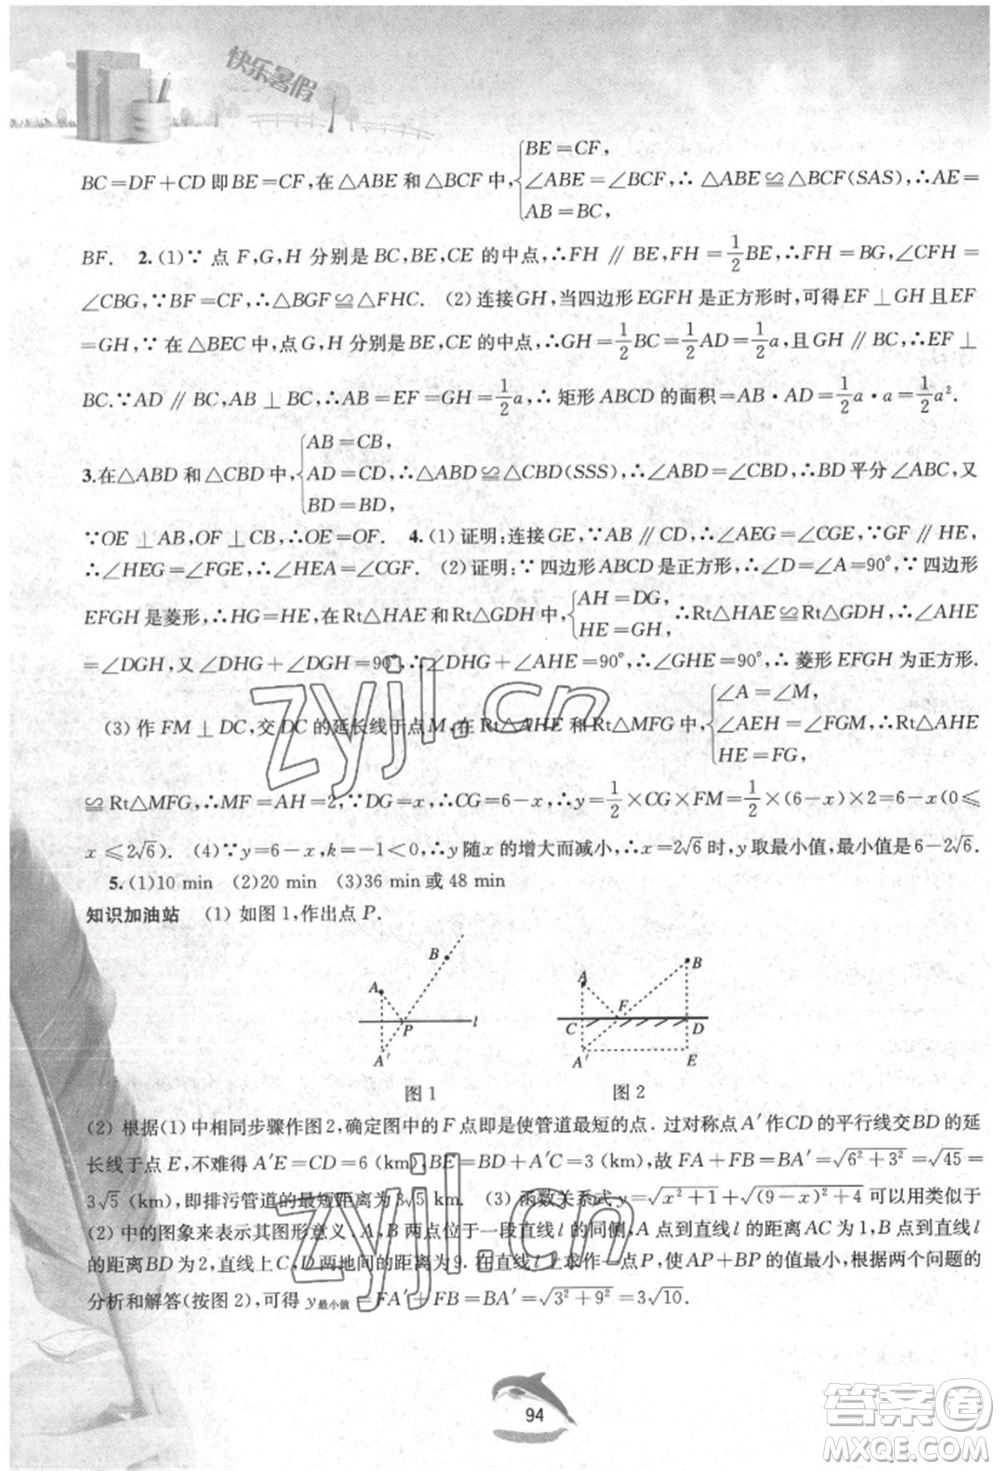 快乐暑假
BC=DF+CD 即BE=CF,在△ABE 和△BCF 中,{BE=CF, ∠ABE=∠BCF, AB=BC, ∴ △ABE≌△BCF(SAS),∴AE=
BF. 2.(1)∵ 点 F,G,H 分别是 BC,BE,CE 的中点,∴FH ∥ BE,FH=1/2BE,∴FH=BG,∠CFH=
∠CBG,∵BF=CF,∴△BGF≌△FHC. (2)连接GH,当四边形 EGFH 是正方形时,可得 EF⊥GH且EF
=GH,∵ 在△BEC 中,点 G,H 分别是 BE,CE 的中点,∴GH=1/2BC=1/2AD=1/2a,且GH ∥ BC,∴EF ⊥
BC.∵AD ∥ BC,AB ⊥ BC,∴AB=EF=GH=1/2a,∴ 矩形 ABCD 的面积=AB·AD=1/2a·a=1/2a².
3.在△ABD 和△CBD 中,{AB=CB, AD=CD, BD=BD, ∴△ABD≌△CBD(SSS),∴∠ABD=∠CBD,∴BD平分∠ABC,又
∵OE⊥AB,OF⊥CB,∴OE=OF. 4.(1)证明:连接GE,∵AB∥CD,∴∠AEG=∠CGE,∵GF∥HE,
∴∠HEG=∠FGE,∴∠HEA=∠CGF. (2)证明:∵ 四边形 ABCD 是正方形,∴∠D=∠A=90°,∵四边形
EFGH 是菱形,∴HG=HE,在Rt△HAE 和Rt△GDH 中,{AH=DG, HE=GH, ∴Rt△HAE≌Rt△GDH,∴∠AHE
=∠DGH,又∠DHG+∠DGH=90°,∴∠DHG+∠AHE=90°,∴∠GHE=90°,∴ 菱形 EFGH 为正方形.
(3)作 FM⊥DC,交 DC 的延长线于点 M,在Rt△AHE 和Rt△MFG 中,{∠A=∠M, ∠AEH=∠FGM, HE=FG, ∴Rt△AHE
≌Rt△MFG,∴MF=AH=2,∵DG=x,∴CG=6-x,∴y=1/2×CG×FM=1/2×(6-x)×2=6-x(0≤
x≤2√6). (4)∵y=6-x,k=-1<0,∴y随x的增大而减小,∴x=2√6时,y取最小值,最小值是6-2√6.
5.(1)10 min (2)20 min (3)36 min 或 48 min
知识加油站 (1) 如图1,作出点 P.
A B P l A′
图1
A B F C D A′ E
图2
(2) 根据(1)中相同步骤作图2,确定图中的 F 点即是使管道最短的点. 过对称点A′作CD的平行线交BD的延
长线于点 E,不难得 A′E=CD=6 (km),BE=BD+DE=BD+A′C=3,故 FA+FB=BA′=√(6²+3²)=
3√5 (km),即排污管道的最短距离为3√5 km. (3) 函数关系式 y=√(x²+1)+√((9-x)²+4) 可以用类似于
(2) 中的图象来表示其图形意义,A,B 两点位于一段直线l的同侧,A点到直线l的距离AC为1,B点到直线l的
距离BD为2,这里C,D两地间的距离为9. 在直线l上求作一点P,使AP+BP的值最小,根据两个问题的
分析和解答(按图2),可得 y最小值=FA′+FB=BA′=√(3²+9²)=3√10.
94
zyjl.cn
zyjl.cn
答案圈
MXQE.COM